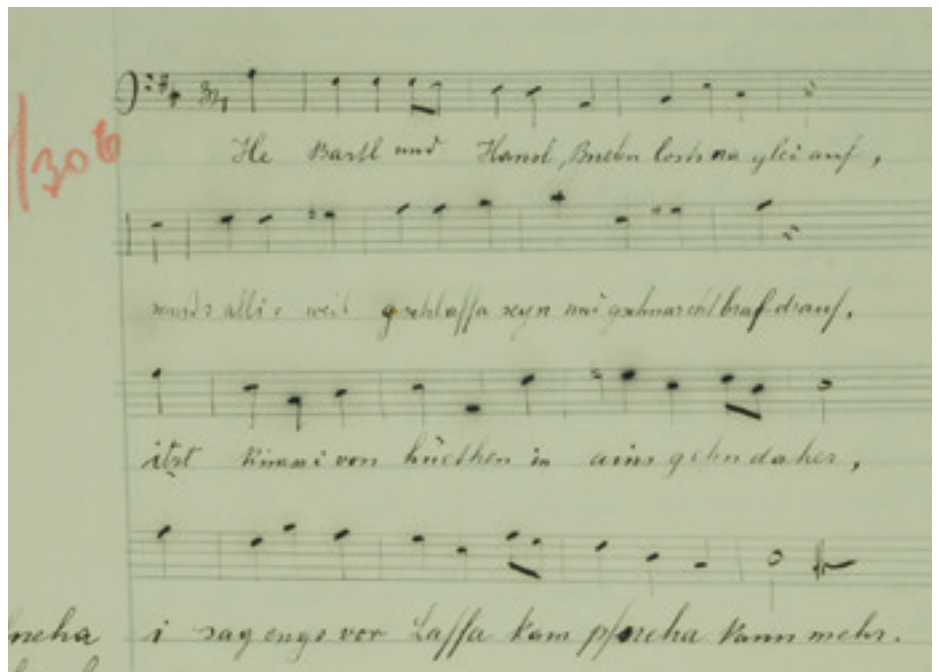 /306
He Bartl und Hansl, Buebn losts na glei auf,
alli weil gschlaffa seyn und gschnarcht braf drauf,
itzt kimmi von hüethen in ains gehn daher,
neha i sag engs vor Laffa kam pfneha kann mehr.